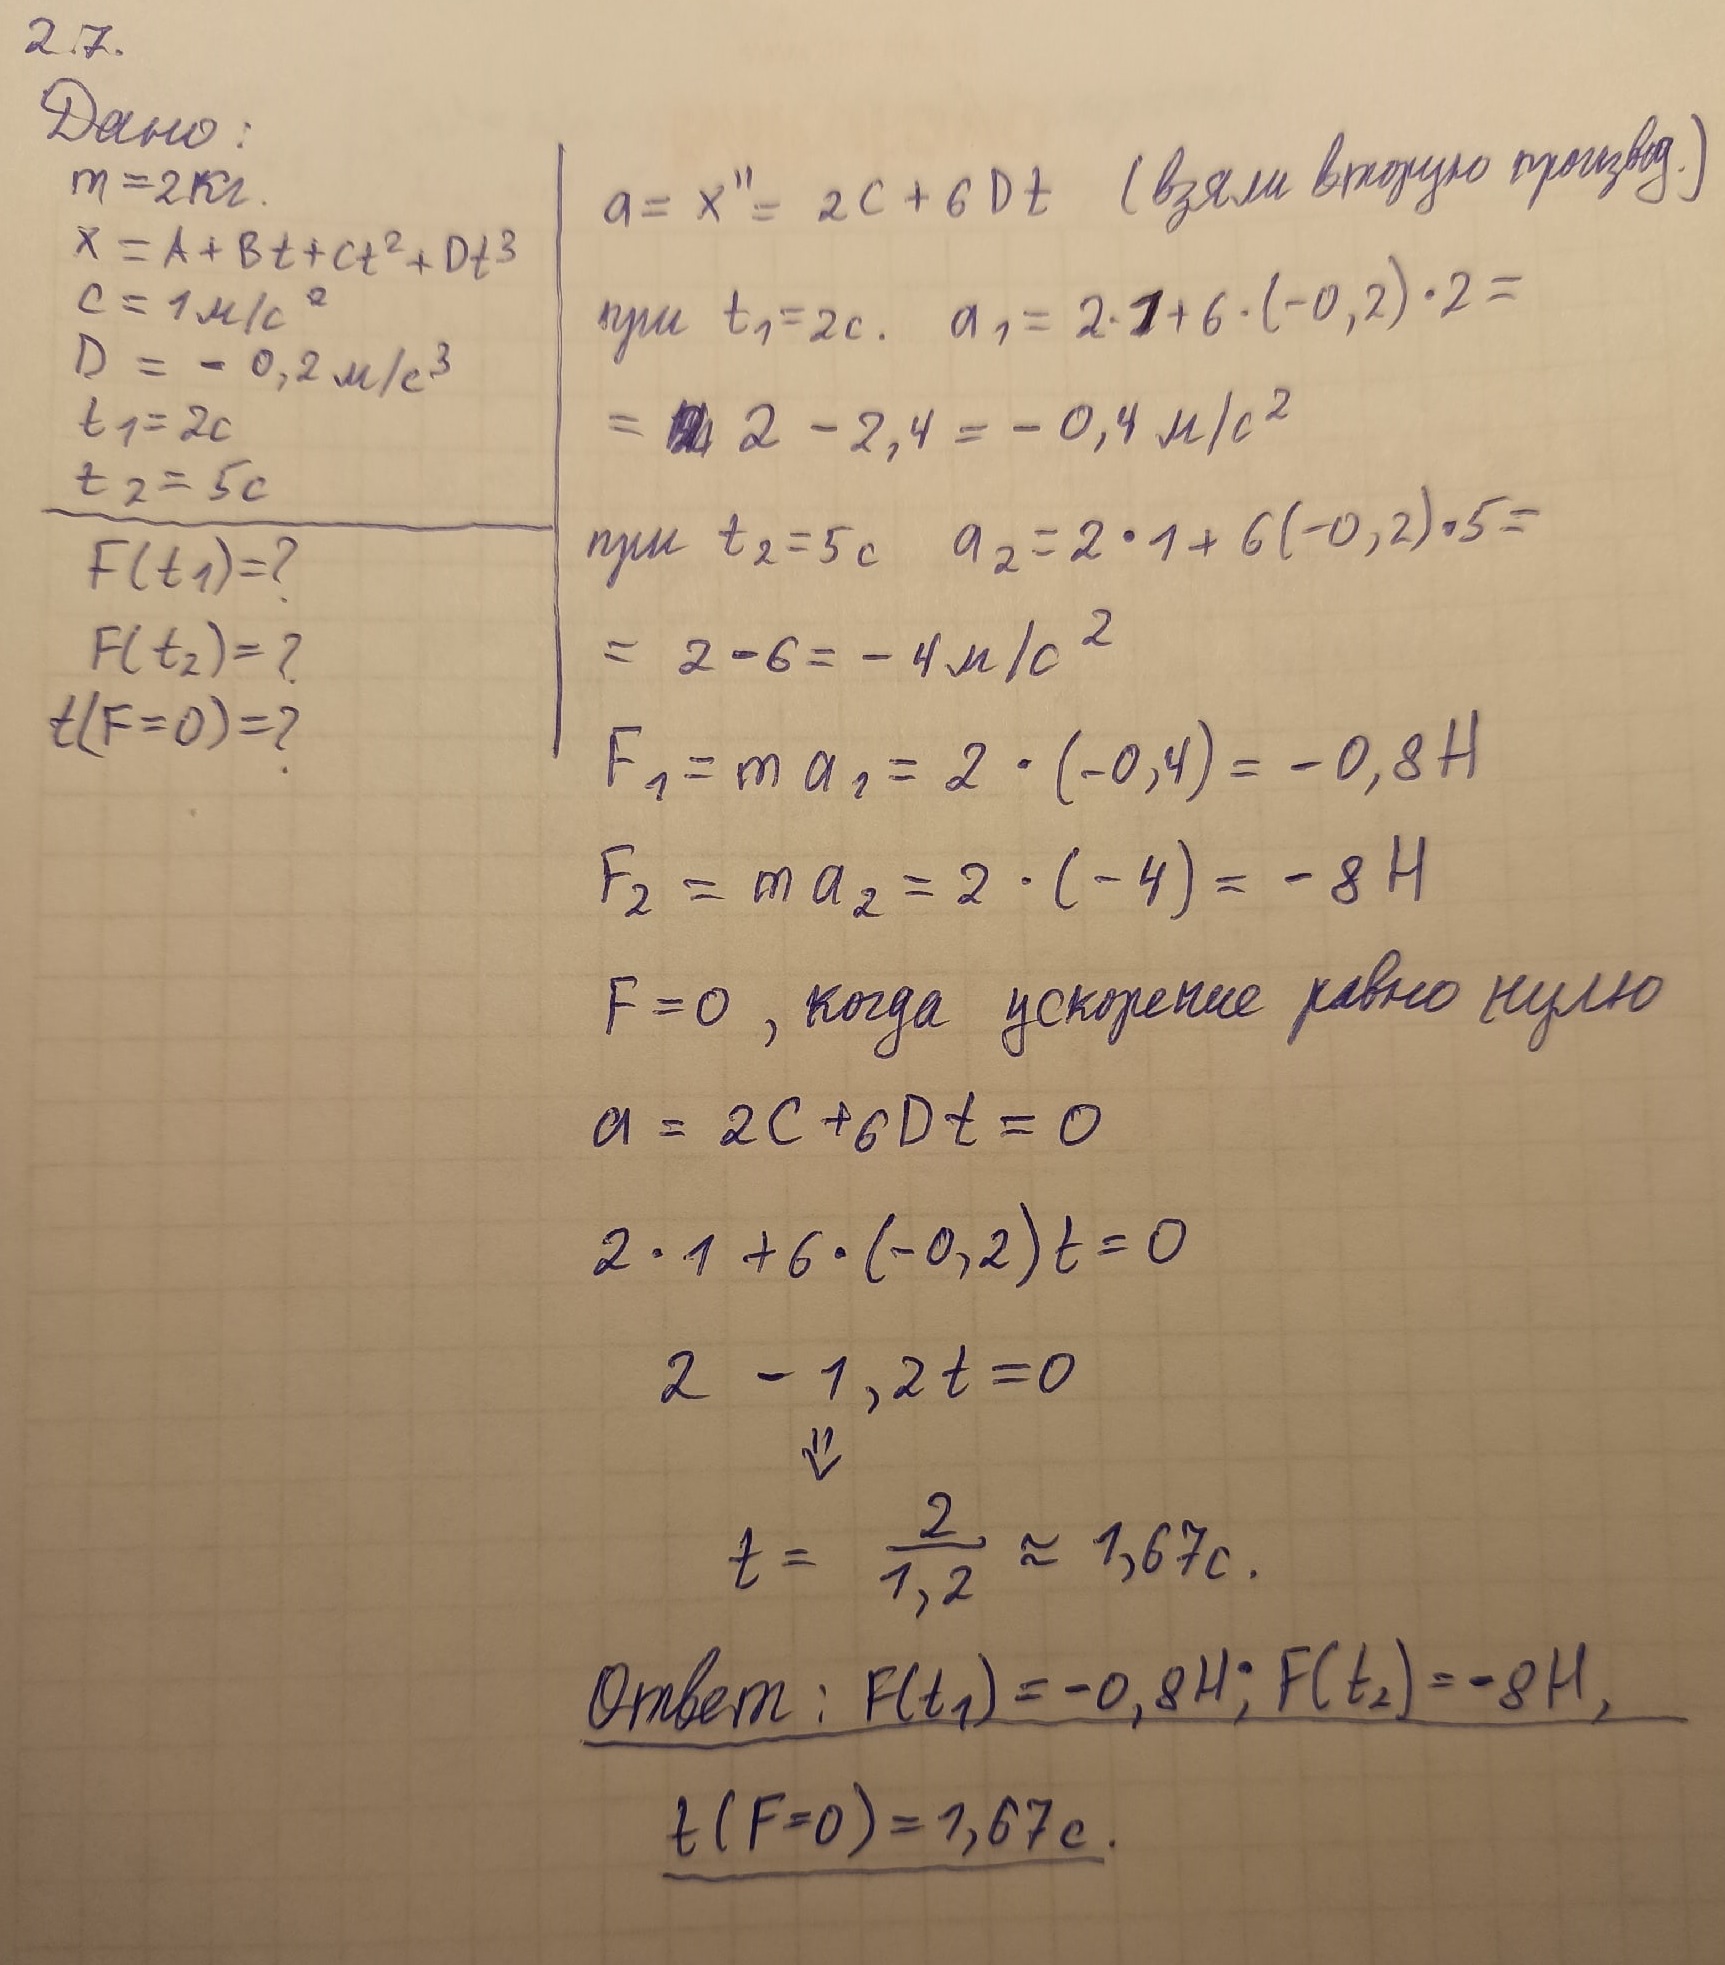 2.7.
Дано:
m=2кг.
x=A+Bt+Ct²+Dt³
C=1м/с²
D=-0,2м/с³
t₁=2с
t₂=5с
F(t₁)=?
F(t₂)=?
t(F=0)=?
a=x''=2C+6Dt (взяли вторую производ.)
при t₁=2с. a₁=2·1+6·(-0,2)·2=
=2-2,4=-0,4м/с²
при t₂=5с a₂=2·1+6(-0,2)·5=
=2-6=-4м/с²
F₁=ma₁=2·(-0,4)=-0,8Н
F₂=ma₂=2·(-4)=-8Н
F=0, когда ускорение равно нулю
a=2C+6Dt=0
2·1+6·(-0,2)t=0
2-1,2t=0
⇓
t=2/1,2≈1,67с.
Ответ: F(t₁)=-0,8Н; F(t₂)=-8Н,
t(F=0)=1,67с.